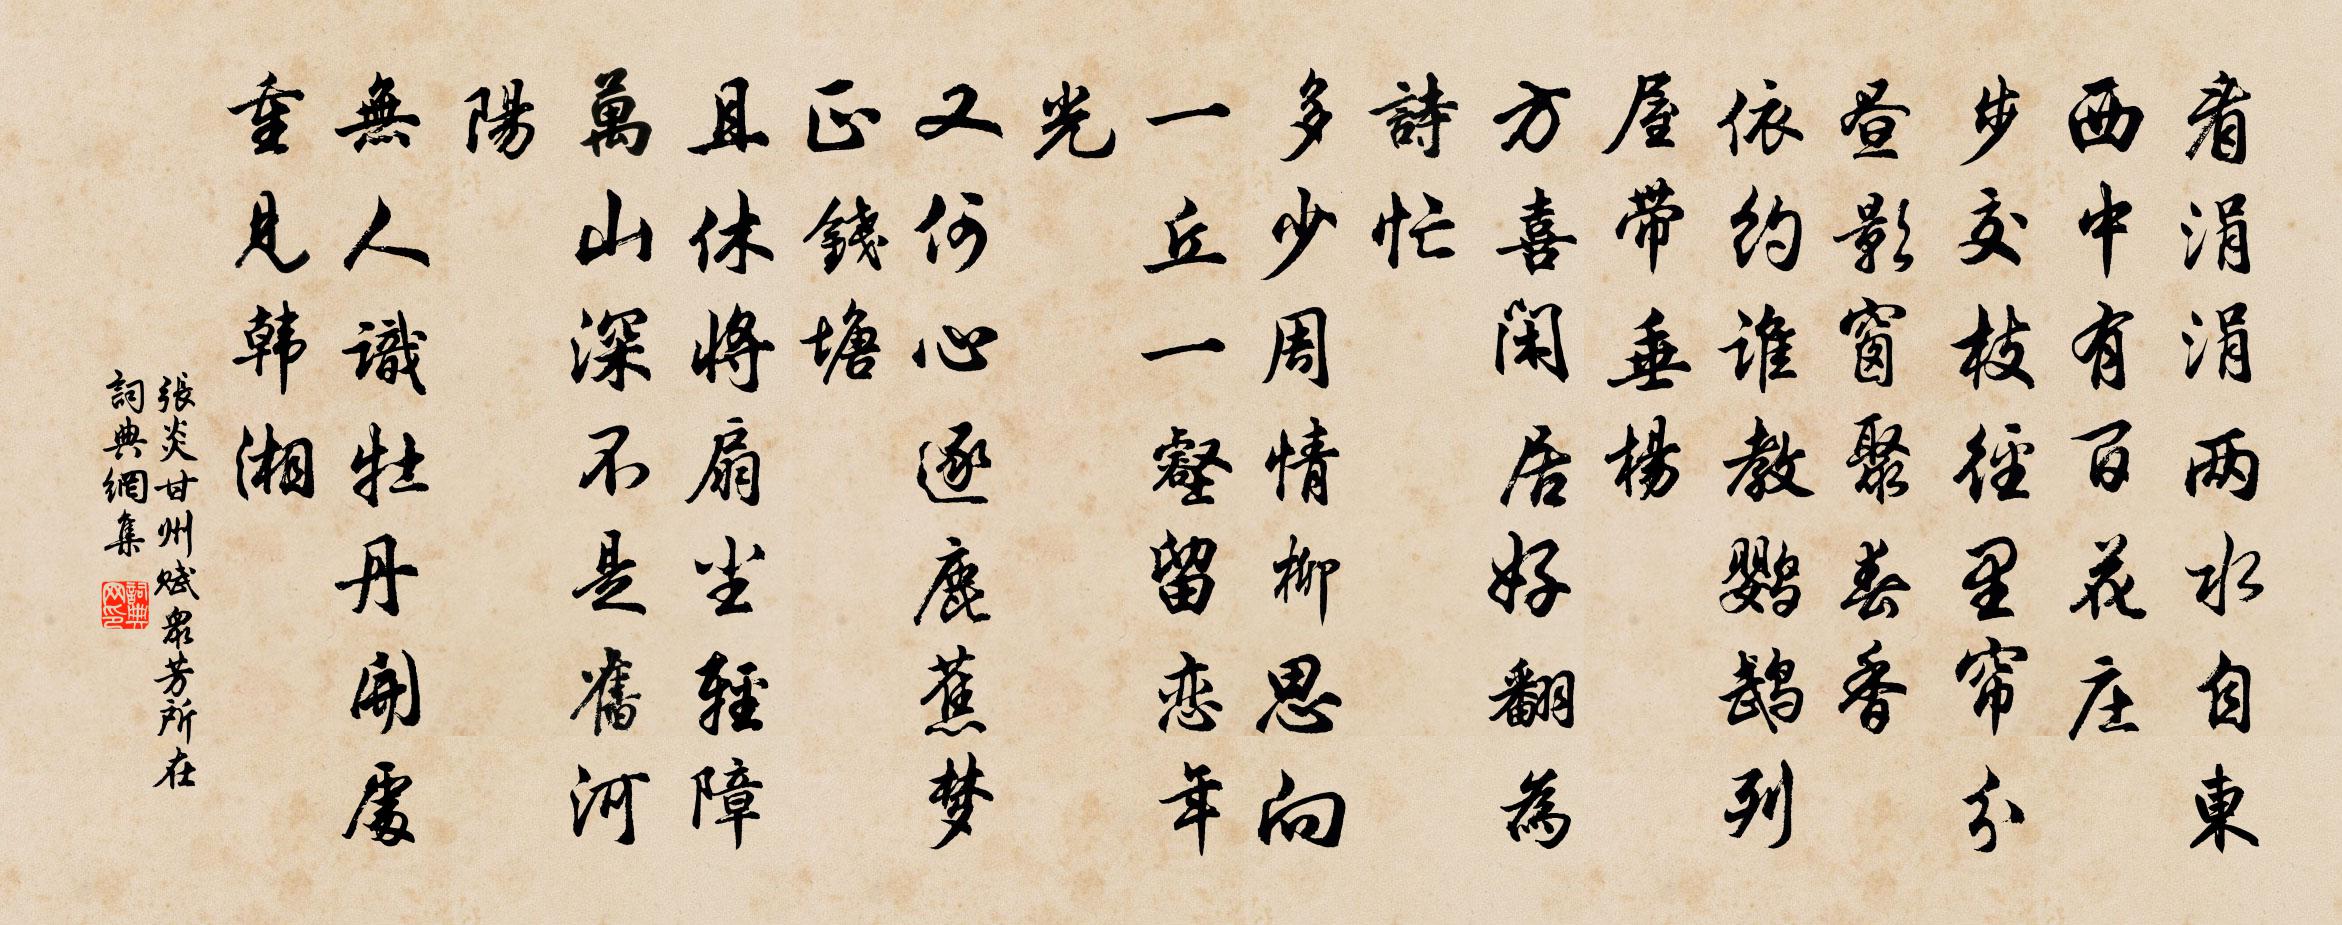 看涓涓兩水自東
西中有百花庄
步交枝徑里帘分
昼影窗聚春香
依約谁教鹦鹉列
屋带垂楊
方喜闲居好翻為
詩忙
多少周情柳思向
一丘一壑留恋年
光
又何心逐鹿蕉梦
正錢塘
且休將扇尘輕障
萬山深不是舊河
陽
無人識牡丹開處
重見韩湘
張炎甘州赋衆芳所在
詞典網集
詞典网印